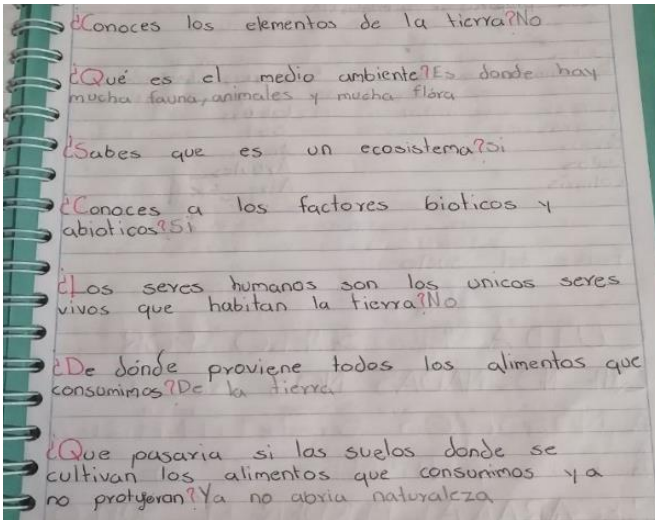 ¿Conoces los elementos de la tierra?No
¿Qué es el medio ambiente?Es donde hay
mucha fauna, animales y mucha flora
¿Sabes que es un ecosistema?Si
¿Conoces a los factores bioticos y
abioticos?Si
¿Los seres humanos son los unicos seres
vivos que habitan la tierra?No
¿De dónde proviene todos los alimentos que
consumimos?De la tierra
¿Que pasaria si los suelos donde se
cultivan los alimentos que consumimos ya
no protyeran?Ya no abria naturaleza